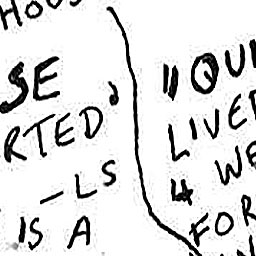 HOUS
SE
RTED'
-LS
IS A
"QUI
LIVE
4 WE
FOR